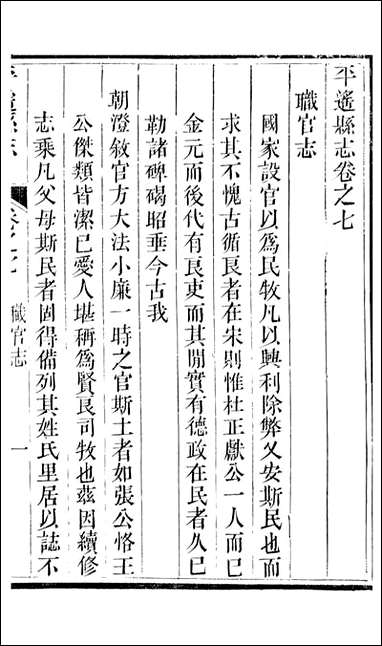 平遙縣志卷之七
職官志
國家設官以爲民牧凡以興利除弊乂安斯民也而
求其不愧古循良者在宋則惟杜正獻公一人而已
金元而後代有良吏而其閒實有德政在民者久已
勒諸碑碣昭垂今古我
朝澄敘官方大法小廉一時之官斯土者如張公恪王
公傑類皆潔已愛人堪稱爲賢良司牧也茲因續修
志乘凡父母斯民者固得備列其姓氏里居以誌不
職官志
一